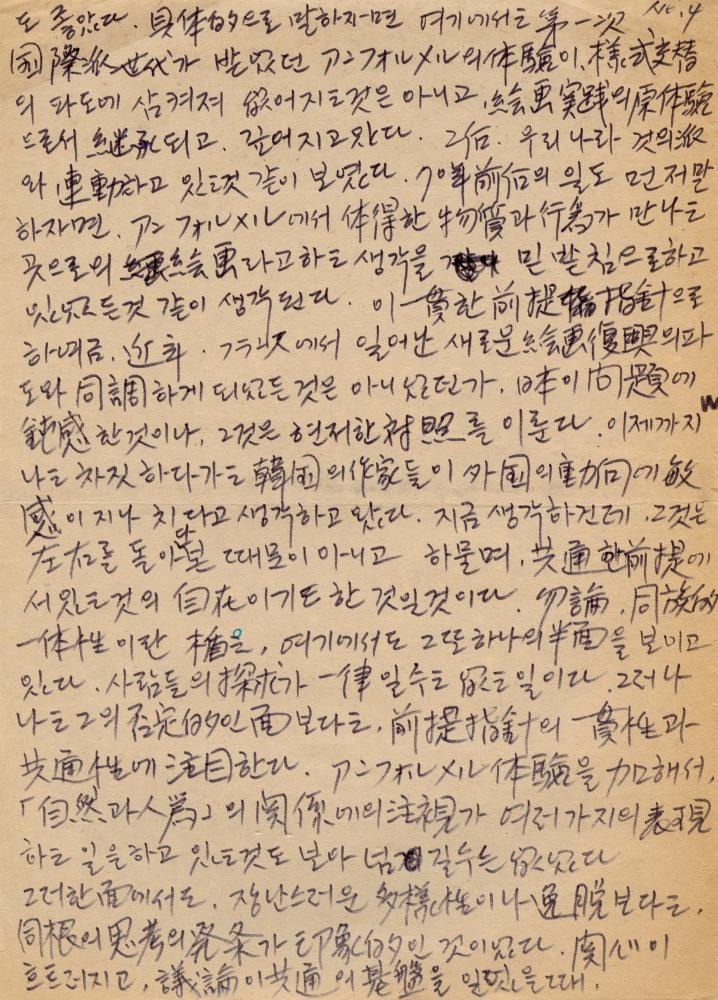 No. 4
도 좋았다. 具体的으로 말하자면 여기에서는 第一次
国際派世代가 받았던 アンフォルメル의 体験이, 様式交替
의 파도에 삼켜져 없어지는것은 아니고, 絵画実践의 原体験
으로서 継承되고, 깊어지고왔다. 그后. 우리나라 것의 派
와 連動하고 있는것 같이 보였다. 7年前后의 일도 먼저말
하자면, アンフォルメル에서 体得한 物質과 行為가 만나는
곳으로의 絵画라고하는 생각을 밑받침으로하고
있었든것 같이 생각된다. 이 一貫한 前提 指針으로
하여금, 近年. フランス에서 일어난 새로운 絵画復興의파
도와 同調하게 되었든것은 아니었던가, 日本이 问題에
鈍感한것이나, 그것은 현저한 対照를 이룬다. 이제까지
나는 차짓하다가는 韓国의 作家들이 外国의 動向에 敏
感이 지나치다고 생각하고 왔다. 지금 생각하건데, 그것은
左右를 돌아본 때문이 아니고 하물며, 共通한 前提에
서있는것의 自在이기도 한 것일것이다. 勿論, 同族的
一体性이란 楯은, 여기에서도 그또하나의 半面을 보이고
있다. 사람들의 探求가 一律일수는 없는일이다. 그러나
나는 그의 否定的인 面보다는, 前提指針의 一貫性과
共通性에 注目한다. アンフォルメル 体験을 加해서,
「自然과 人為」의 関係에의 注視가 여러가지의 表現
하는 일을하고 있는것도 보아 넘길수는 없었다
그러한 面에서도, 장난스러운 多様性이나 逸脱보다는,
同根의 思考의 発条가 印象的인 것이었다. 関心이
흐트러지고, 議論이 共通의 基盤을 잃었을때.